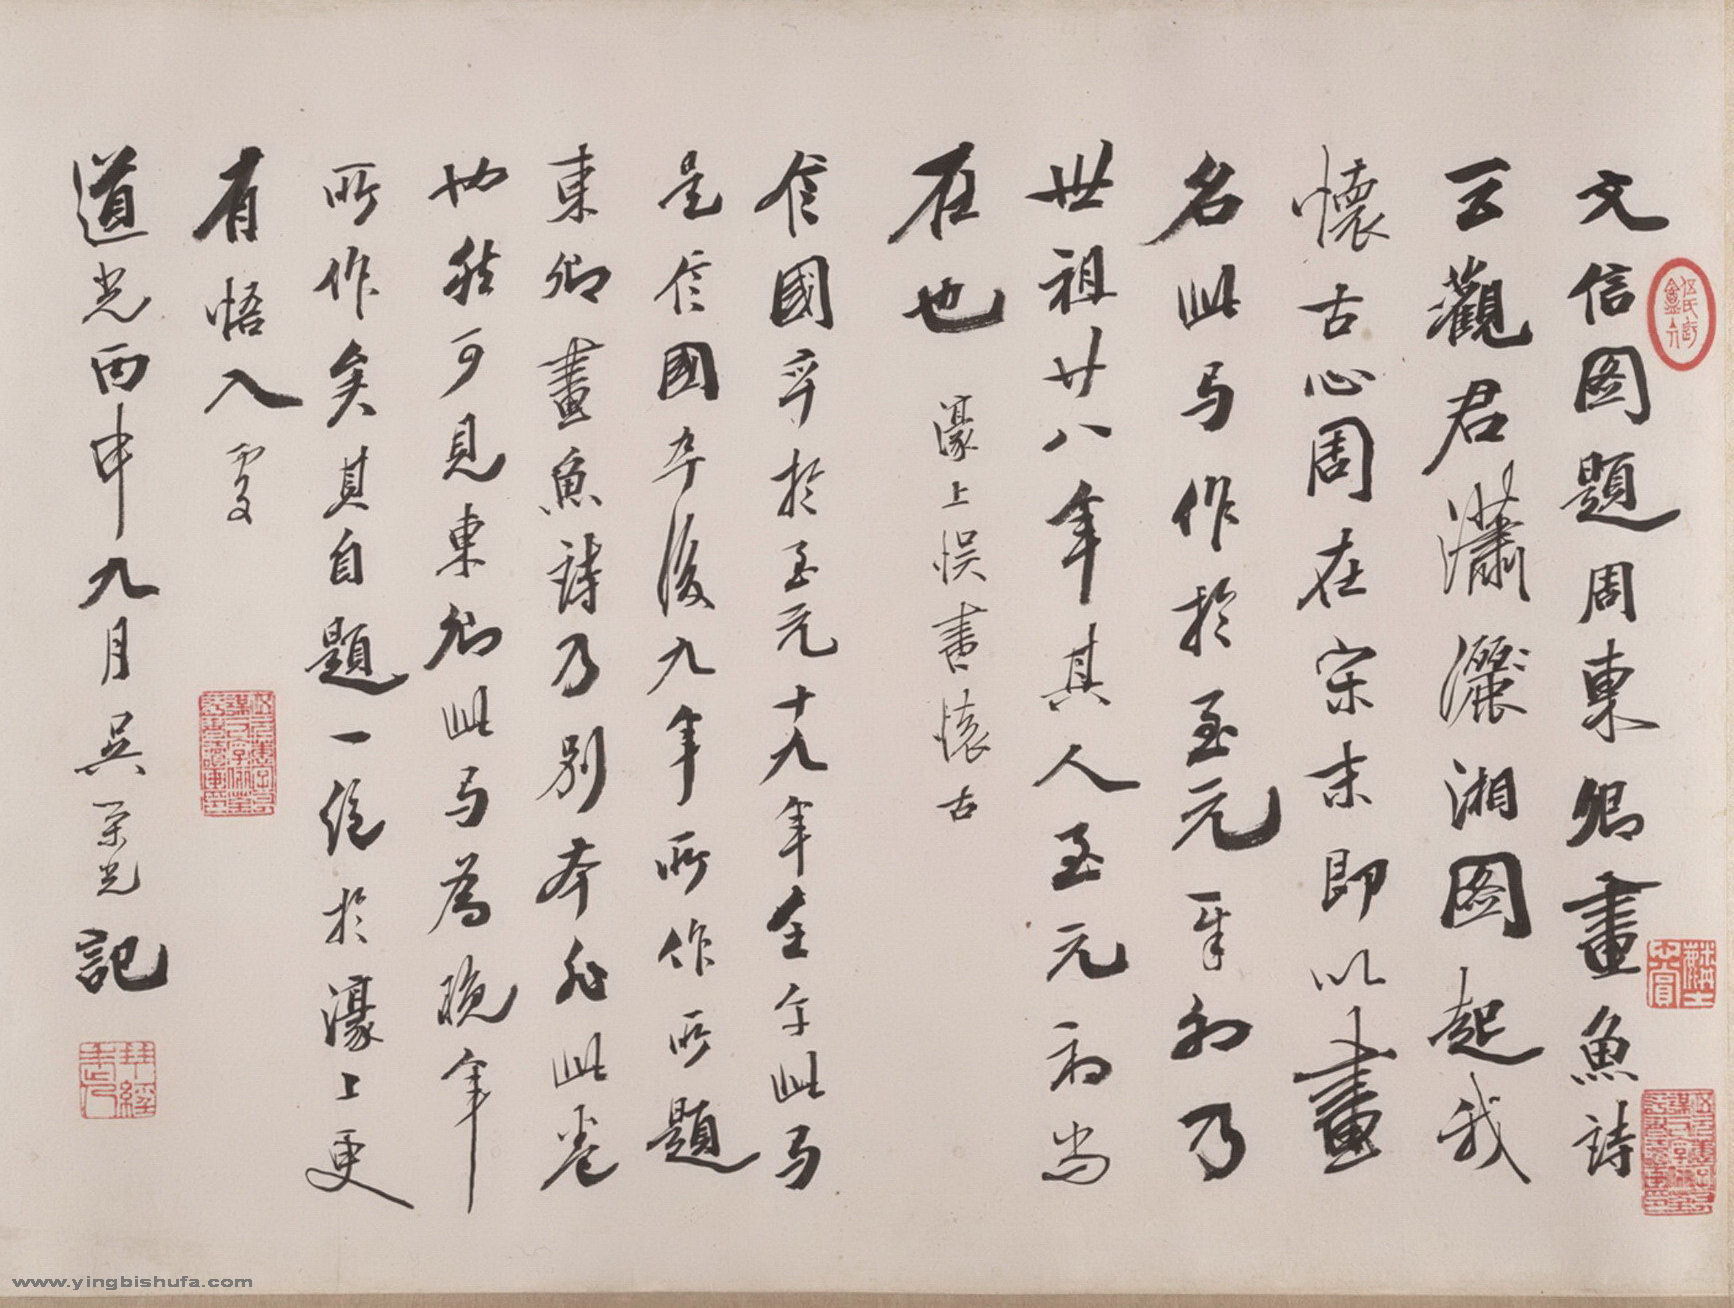 文信国題周東卿畫魚詩
云觀君瀟灑湘图起我
懷古心周在宋末即以畫
名此与作於至元辛卯乃
世祖廿八年其人至元初尚
在也 濠上悮書懷古
信國卒於至元十九年壬午此与
是信國卒後九年所作所題
東卿畫魚詩乃別本非此卷
也然可見東卿此与為晚年
所作矣其自題一絕於濠上更
有悟入處
道光丙申九月吳榮光記
www.yingbishufa.com